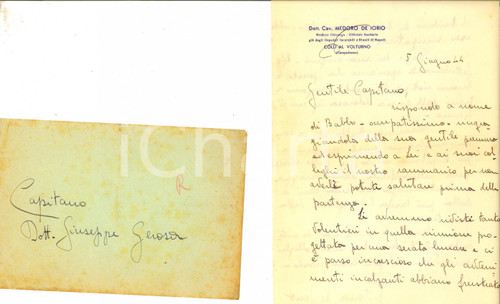 Dott. Cav. MEDORO DE IORIO
Medico Chirurgo - Ufficiale Sanitario
già degli Ospedali Incurabili e Riuniti di Napoli
COLLI AL VOLTURNO
(Campobasso)
5 Giugno 44
Gentile Capitano,
rispondo a nome
di Babbo - occupatissimo - ringra
ziandola della sua gentile premura
ed esprimendo a Lei e ai suoi col
leghi il nostro rammarico per non
averli potuti salutare prima della
partenza.
Li avremmo rivisti tanto
volentieri in quella riunione pro
gettata per una serata lunare e ci
è parso increscioso che gli avveni
menti incalzanti abbiano frustrato
Capitano
Dott. Giuseppe Gerosa
R
iCharta